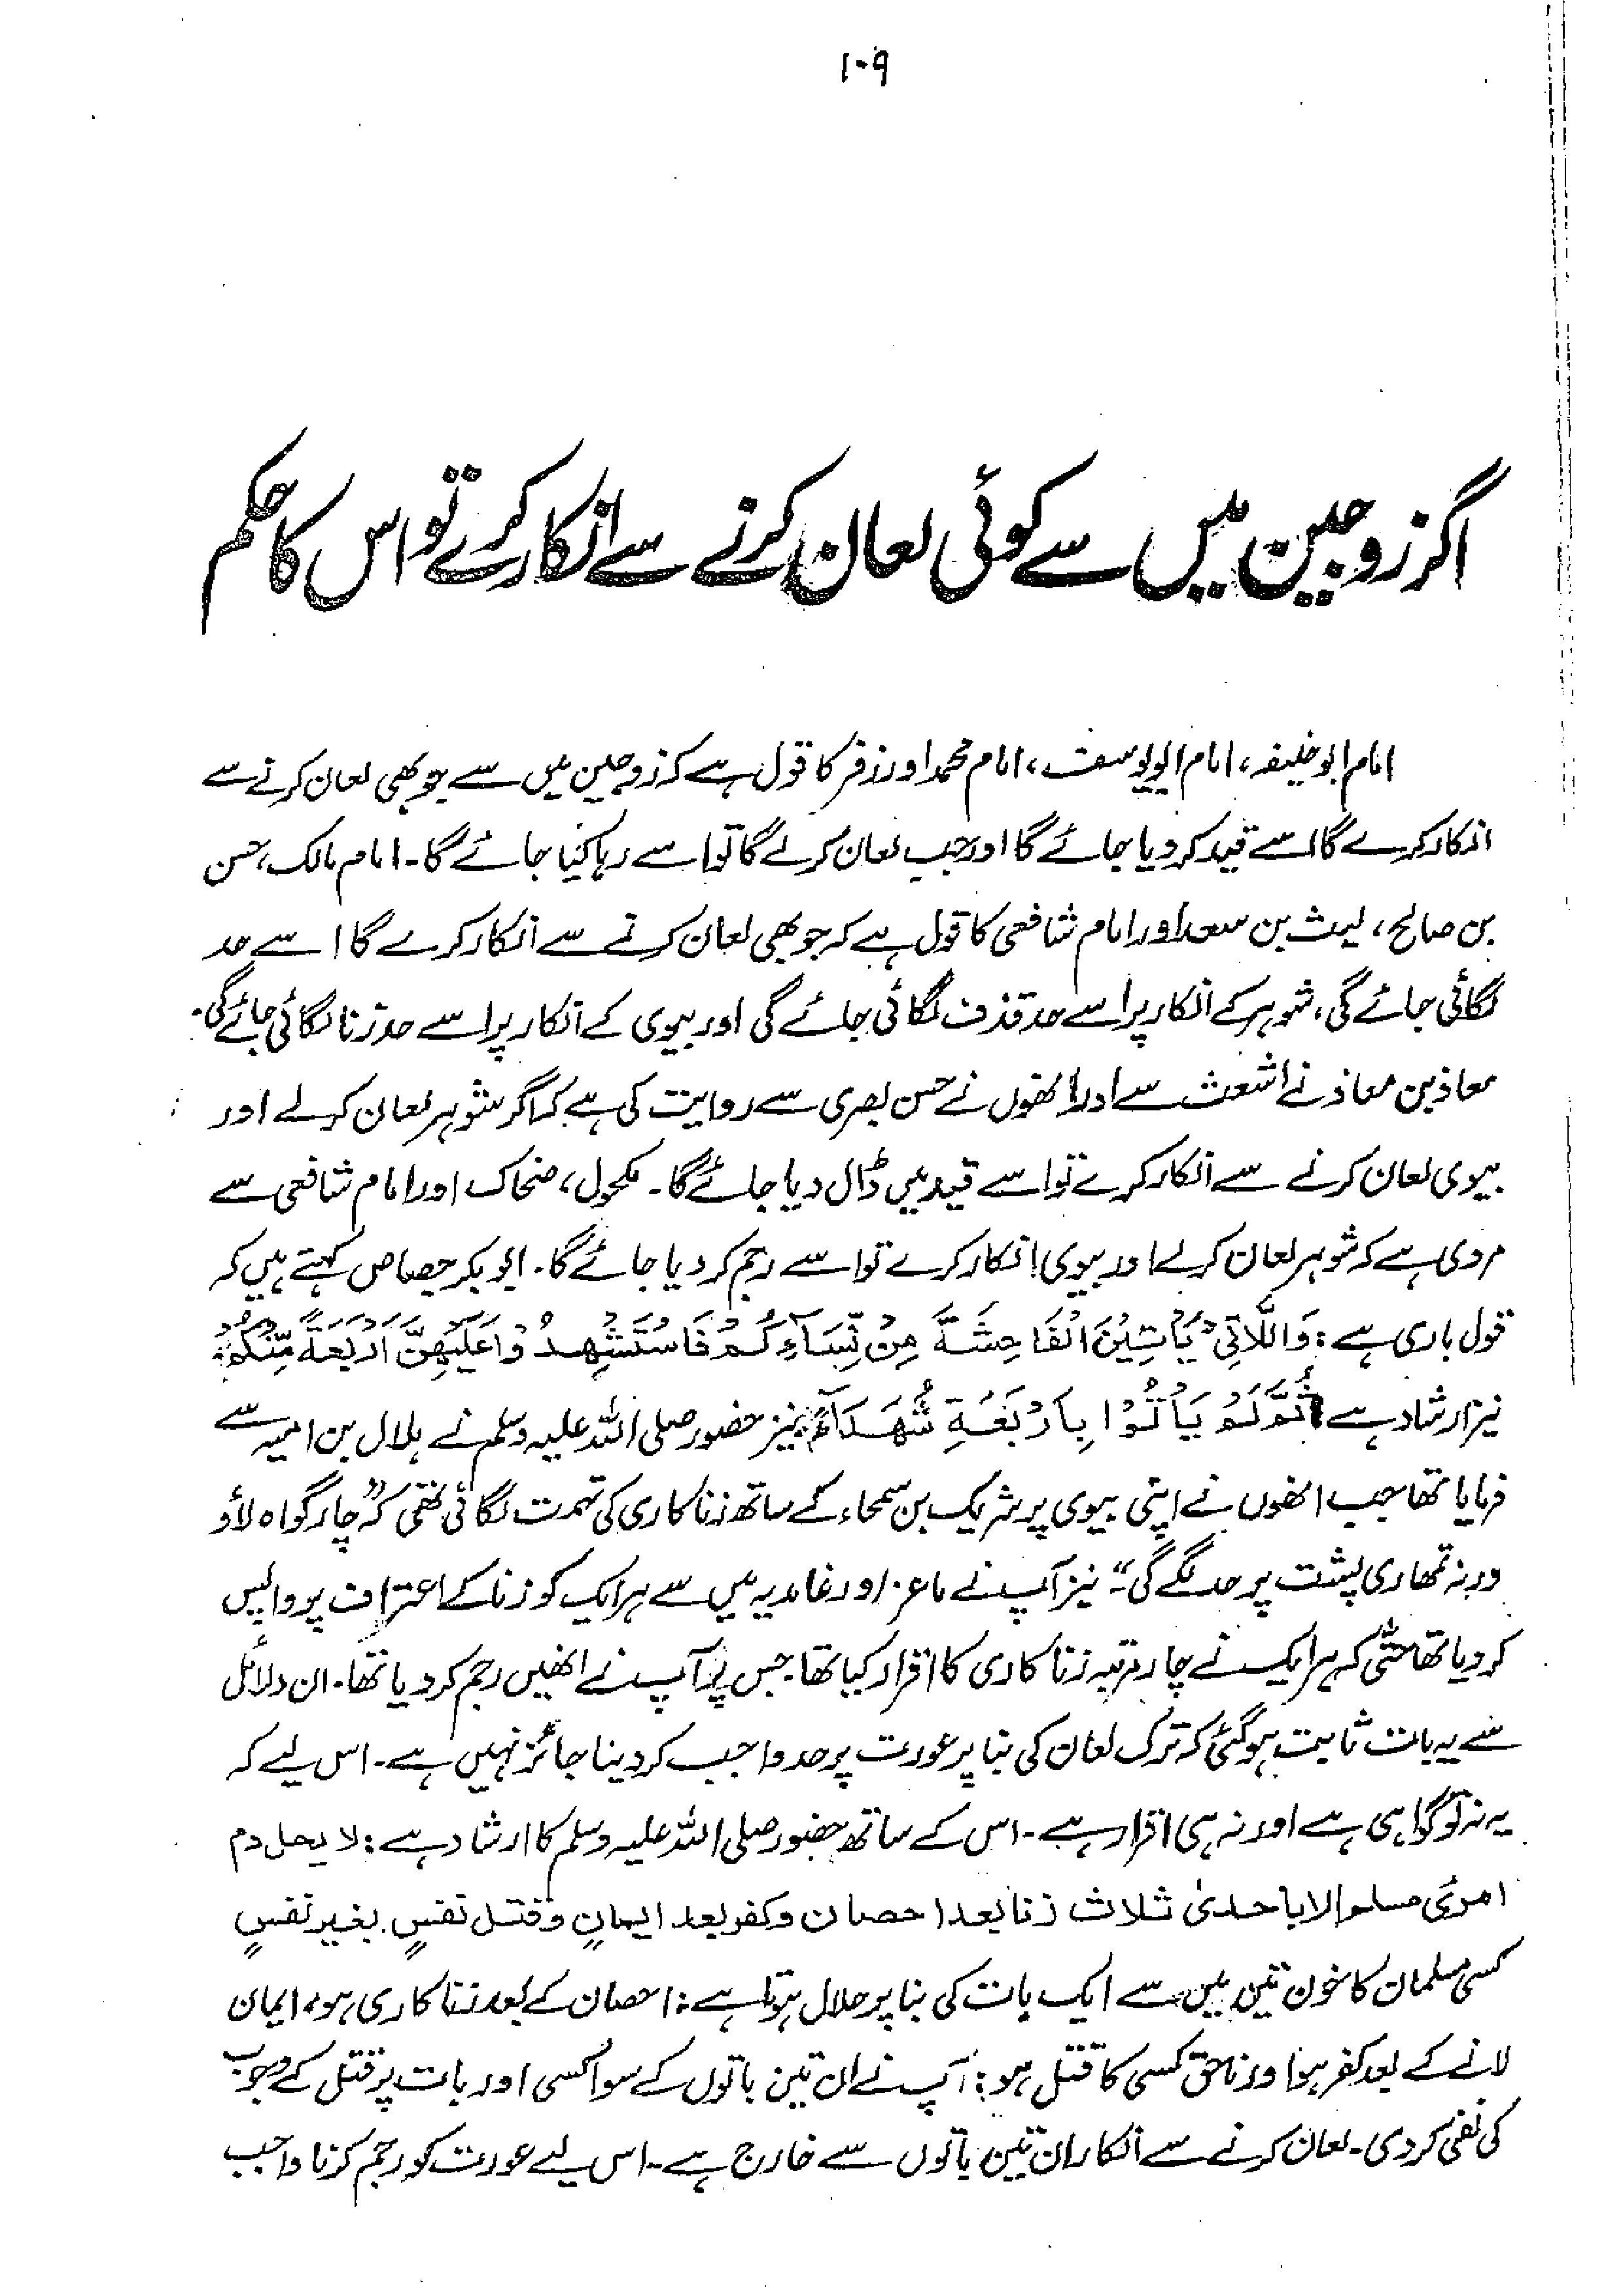 ۱۰۹
اگر زوجین میں سے کوئی لعان کرنے سے انکار کرے تو اس کا حکم
امام ابوحنیفہ، امام ابویوسف، امام محمد اور زفر کا قول ہے کہ زوجین میں سے جو بھی لعان کرنے سے
انکار کرے گا اسے قید کر دیا جائے گا اور جب لعان کرلے گا تو اسے رہا کیا جائے گا۔ امام مالک، حسن
بن صالح، لیث بن سعد اور امام شافعی کا قول ہے کہ جو بھی لعان کرنے سے انکار کرے گا اسے حد
لگائی جائے گی، شوہر کے انکار پر اسے حد قذف لگائی جائے گی اور بیوی کے انکار پر اسے حد زنا لگائی جائے گی۔
معاذ بن معاذ نے اشعث سے اور انھوں نے حسن بصری سے روایت کی ہے کہ اگر شوہر لعان کرلے اور
بیوی لعان کرنے سے انکار کرے تو اسے قید میں ڈال دیا جائے گا۔ مکحول، ضحاک اور امام شافعی سے
مروی ہے کہ شوہر لعان کرلے اور بیوی انکار کرے تو اسے رجم کر دیا جائے گا۔ ابوبکر جصاص کہتے ہیں کہ
قول باری ہے: وَاللَّاتِیْ یَاْتِیْنَ الْفَاحِشَةَ مِنْ نِّسَآءِکُمْ فَاسْتَشْهِدُوْا عَلَیْهِنَّ اَرْبَعَةً مِّنْکُمْ
نیز ارشاد ہے ثُمَّ لَمْ یَاْتُوْا بِاَرْبَعَةِ شُهَدَآءَ نیز حضور صلی اللہ علیہ وسلم نے ہلال بن امیہ سے
فرمایا تھا جب انھوں نے اپنی بیوی پر شریک بن سحماء کے ساتھ زنا کاری کی تہمت لگائی تھی کہ "چار گواہ لاؤ
ورنہ تمھاری پشت پر حد لگے گی"۔ نیز آپ نے ماعز اور غامدیہ میں سے ہر ایک کو زنا کے اعتراف پر واپس
کر دیا تھا حتیٰ کہ ہر ایک نے چار مرتبہ زنا کاری کا اقرار کیا تھا۔ جس پر آپ نے انھیں رجم کر دیا تھا۔ ان دلائل
سے یہ بات ثابت ہوگئی کہ ترک لعان کی بنا پر عورت پر حد واجب کر دینا جائز نہیں ہے۔ اس لیے کہ
یہ نہ تو گواہی ہے اور نہ ہی اقرار ہے۔ اس کے ساتھ حضور صلی اللہ علیہ وسلم کا ارشاد ہے: لا یحل دم
امرئ مسلم الا باحدیٰ ثلاث زنا بعد احصان وکفر بعد ایمانٍ وقتل نفسٍ بغیر نفسٍ
کسی مسلمان کا خون تین میں سے ایک بات کی بنا پر حلال ہوتا ہے: احصان کے بعد زنا کاری ہو، ایمان
لانے کے بعد کفر ہو اور ناحق کسی کا قتل ہو: آپ نے ان تین باتوں کے سوا کسی اور بات پر قتل کے وجوب
کی نفی کر دی۔ لعان کرنے سے انکار ان تین باتوں سے خارج ہے۔ اس لیے عورت کو رجم کرنا واجب